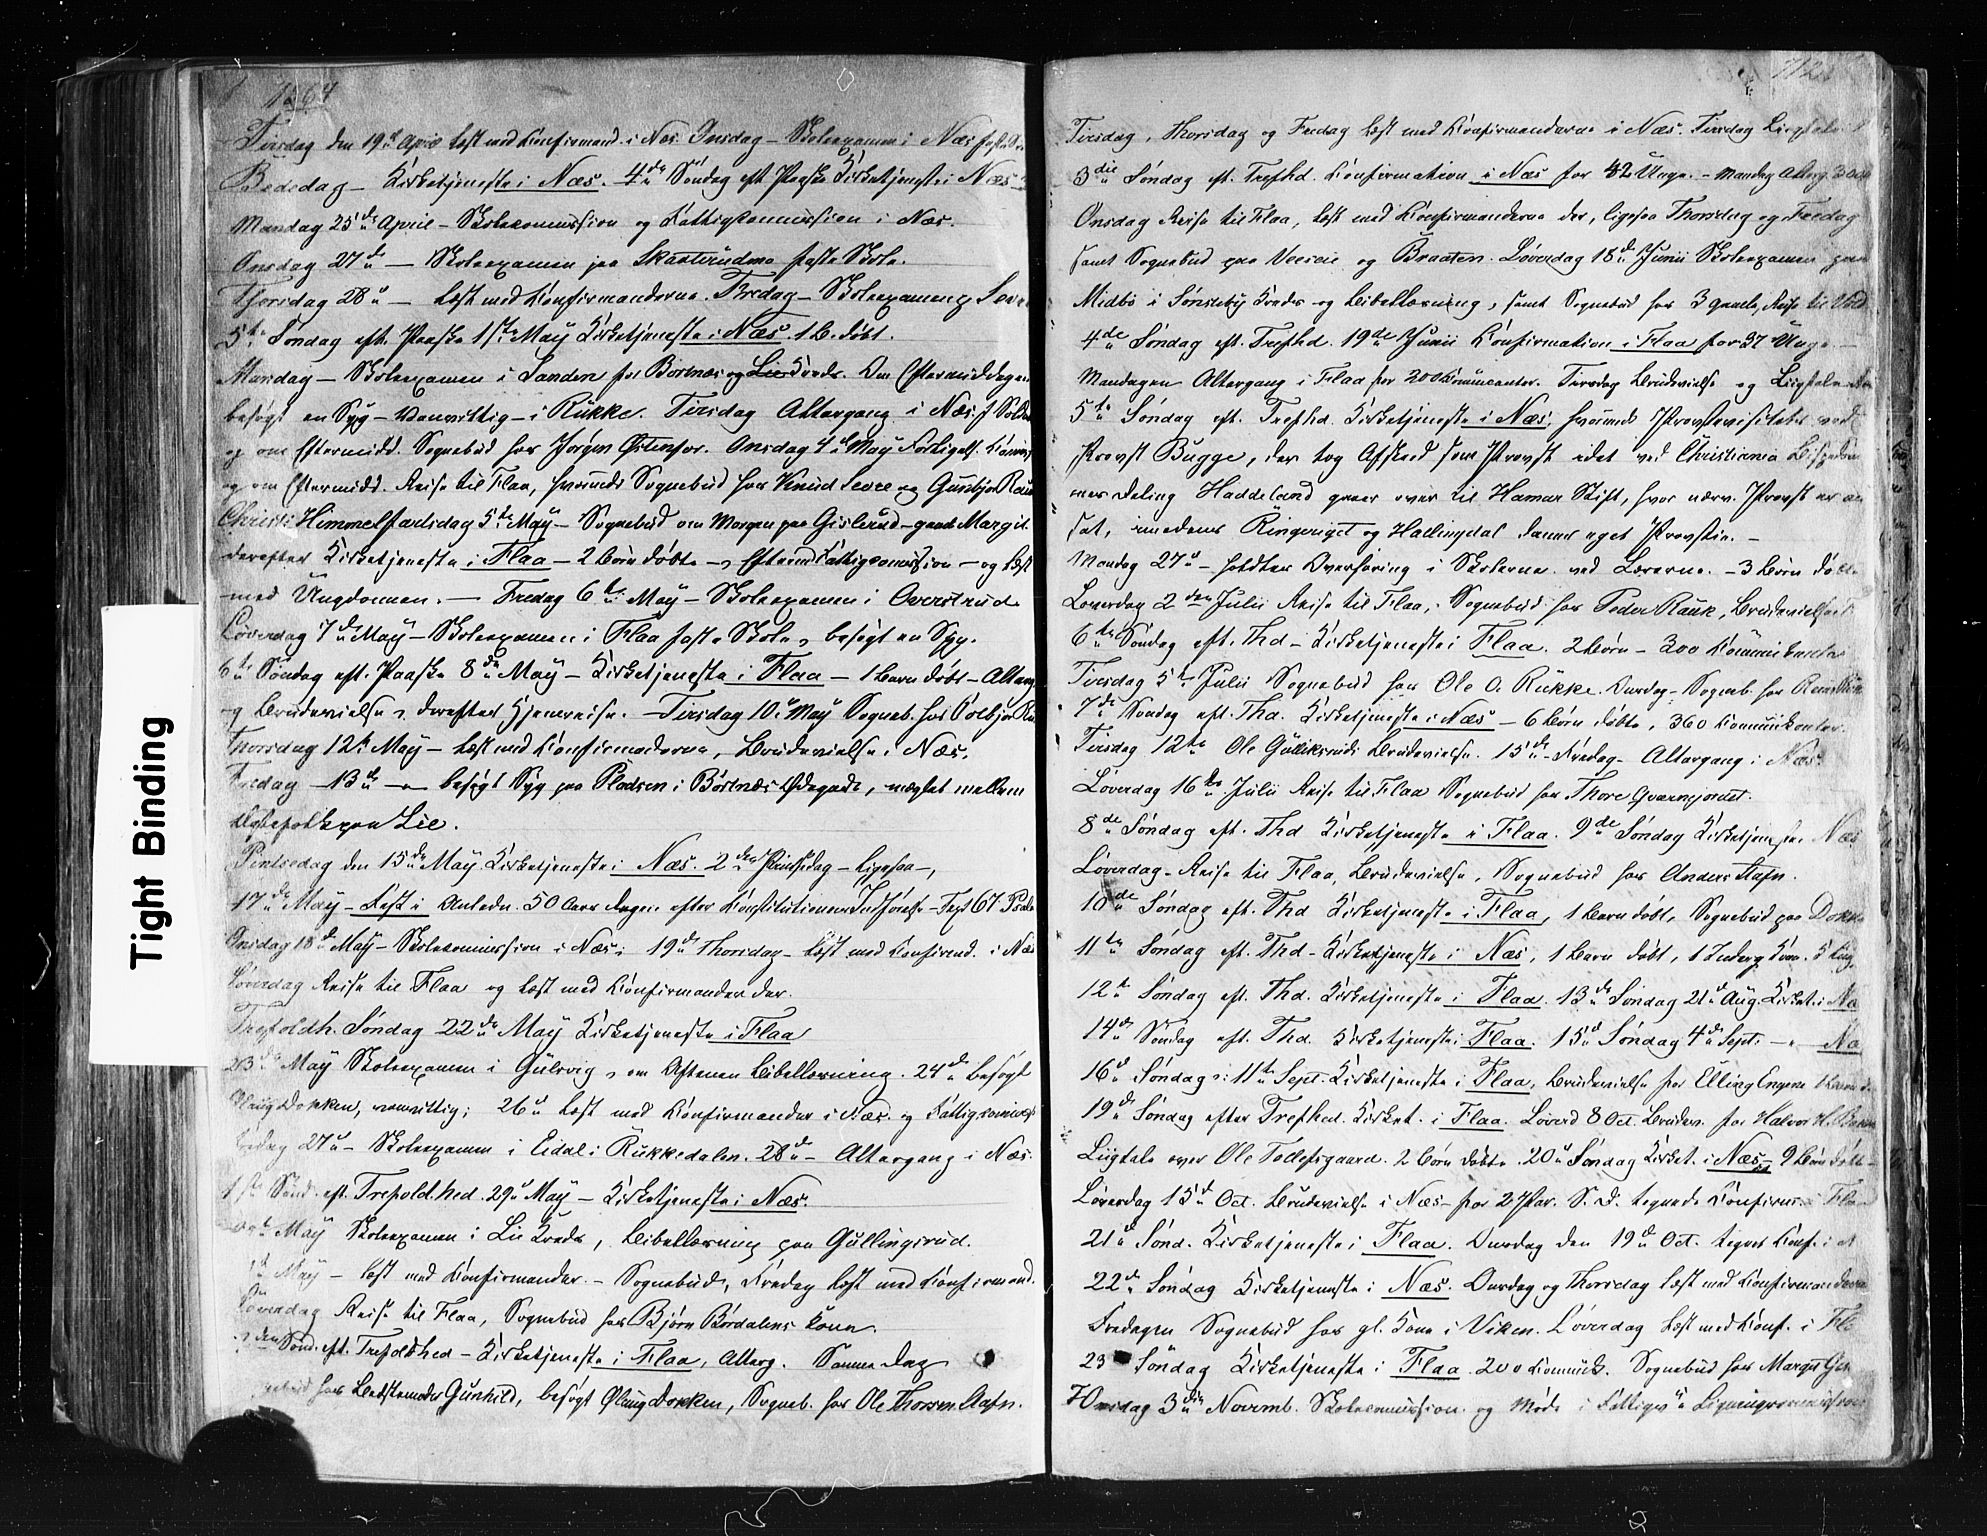 1864
Tirsdag den 19de April læst med Confirmand. i Næs. Onsdag – Skoleexamen i Næs faste
Bededag – Kirketjeneste i Næs. 4de Søndag eft Paaske Kirketjeneste i Næs
Mandag 25de April – Skolecommission og Fattigkommission i Næs.
Onsdag 27de – Skoleexamen paa Skarterudmo faste Skole.
Thorsdag 28de – læst med Confirmanderne. Fredag – Skoleexamen
5te Søndag eft. Paaske 1ste May Kirketjeneste i Næs. 1 B. døbt.
Mandag – Skoleexamen i Sanden for Bortnæs og Lie Kreds. Om Eftermiddagen
besøgt en Syg – vanvittig – i Rukke. Tirsdag Altergang i Næs.
og om Eftermidd. Sognebud hos Jørgen Østenfor. Onsdag 4de May
og om Eftermidd. Reise til Flaa, hvorunder Sognebud hos Knud Sevre og Gunbjør
Christi Himmelfartsdag 5te May – Sognebud om Morgen paa Gislerud – gamle Margit
derefter Kirketjeneste i Flaa – 2 Børn døbte – Efterm. Fattigcommission – og læst
med Ungdommen. – Fredag 6te May – Skoleexamen i Averstrud
Løverdag 7de May – Skoleexamen i Flaa faste Skole, besøgt en Syg.
6te Søndag eft. Paaske 8de May – Kirketjeneste i Flaa – 1 Barn døbt – Alterg
og Brudevielse, derefter Hjemreise. – Tirsdag 10de May Sogneb. hos
Thorsdag 12te May – læst med Confirmanderne, Brudevielse i Næs.
Fredag 13de – besøgt Syg paa Pladsen i Børtnæs Ødegaard, mæglet mellem
Ægtefolk paa Lie.
Pintsedag den 15de May Kirketjeneste i Næs. 2den Pintsedag – ligesaa –,
17de May – Fest i Anledn. 50 Aars Dagen efter Constitutionens Indførelse – Text 67 Psalm
Onsdag 18de May – Skolecommission i Næs; 19de Thorsdag – læst med Confirmd. i Næs
Løverdag Reise til Flaa og læst med Confirmander der.
Trefoldh. Søndag 22de May Kirketjeneste i Flaa
23de May Skoleexamen i Gulsvig, om Aftenen Bibellæsning. 24de besøgt
Dokken, vanvittig; 26de læst med Confirmander i Næs. og Fattigcommiss
Fredag 27de – Skoleexamen i Eidal i Rukkedalen. 28de – Altergang i Næs.
1ste Sønd. eft. Trefoldhed. 29de May – Kirketjeneste i Næs.
May Skoleexamen i Lie Kreds, Bibellæsning paa Gullingsrud.
May – læst med Confirmander. – Sognebud, Fredag læst med Confirmand.
Løverdag Reise til Flaa, Sognebud hos Bjørn Børdalens Kone.
den Sønd. eft. Trefoldhed – Kirketjeneste i Flaa, Alterg. Samme Dag
Sognebud hos Bedstemoder Gunhild, besøgt Øliaug Dokken, Sogneb. hos Ole Thorsen Stafn.
Tirsdag, Thorsdag og Fredag læst med Confirmanderne i Næs. Tirsdag Liigtale
3die Søndag eft. Trefhd. Confirmation i Næs for 42 Unge. – Mandag Alterg.
Onsdag Reise til Flaa, læst med Confirmanderne der, ligesaa Thorsdag og Fredag
samt Sognebud paa Veeseie og Braaten. Løverdag 18de Junii Skoleexamen paa
Midbø i Sønsteby Kreds og Bibellæsning, samt Sognebud hos 3 gamle, Reise til
4de Søndag eft. Trefhd. 19de Junii Confirmation i Flaa for 37 Unge. –
Mandagen Altergang i Flaa for 200 Communicanter. Tirsdag Brudevielse og Liigtale
5te Søndag eft. Trefhd. Kirketjeneste i Næs, hvorunder Provstevisitats ved
Provst Bugge, der tog Afsked som Provst idet ved Christiania Bispedøm
mes Deling Haddeland gaaer over til Hamar Stift, hvor nærv. Provst er an
sat, imedens Ringeriget og Hallingdal danner eget Provstie. –
Mandag 27de – holdtes Overhøring i Skolerne ved Lærerne. – 3 Børn døbte
Løverdag 2den Julii Reise til Flaa, – Sognebud hos Peder Rauk, Brudevielse
6te Søndag eft. Thd – Kirketjeneste i Flaa. 2 Børn – 300 Kommunikanter
Tirsdag 5te Julii Sognebud hos Ole O. Rukke. Onsdag – Sogneb. hos
7de Søndag eft. Thd. Kirketjeneste i Næs – 6 Børn døbte, 360 Communikanter.
Tirsdag 12te Ole Gulliksruds Brudevielse. 15de – Fredag – Altergang i Næs
Løverdag 16de Julii Reise til Flaa Sognebud hos Thore Qværnjordet.
8de Søndag eft. Thd Kirketjeneste i Flaa. 9de Søndag Kirketjeneste Næs
Løverdag – Reise til Flaa, Brudevielse, Sognebud hos Anders Stafn.
10de Søndag eft. Thd Kirketjeneste i Flaa, 1 Barn døbt, Sognebud paa Dokk
11te Søndag eft. Thd – Kirketjeneste i Næs, 1 Barn døbt, 1 Kone.
12te Søndag eft. Thd. Kirketjeneste i Flaa. 13de Søndag 21de Aug. Kirket. i Næ
14de Søndag eft. Thd. Kirketjeneste i Flaa. 15de Søndag 4de Sept. – Næ
16de Søndag : 11te Sept. Kirketjeneste i Flaa, Brudevielse for Elling Engene 1 Barn
19de Søndag efter Trefhed. Kirket. i Flaa. Løverd 8 Oct. Brudev. for Halvor H.
Liigtale over Ole Tollefsgaard. 2 Børn døbte. 20de Søndag Kirket. i Næs – 9 Børn døbte –
Løverdag 15de Oct. Brudevielse i Næs – for 2 Par. S. D. tegnede Confirm. i Flaa
21de Sønd. Kirketjeneste i Flaa. Onsdag den 19de Oct. tegnet Conf. i N
22de Søndag Kirketjeneste i Næs. Onsdag og Thorsdag læst med Confirmanderne
Fredagen Sognebud hos gl. Kone i Viken. Løverdag læst med Conf. i Fla
23 Søndag Kirketjeneste i Flaa. 200 Commuk. Sognebud hos Margit
Onsdag 3die Novemb. Skolecommission og Møde i Fattig- & Ligningscommission
Tight Binding